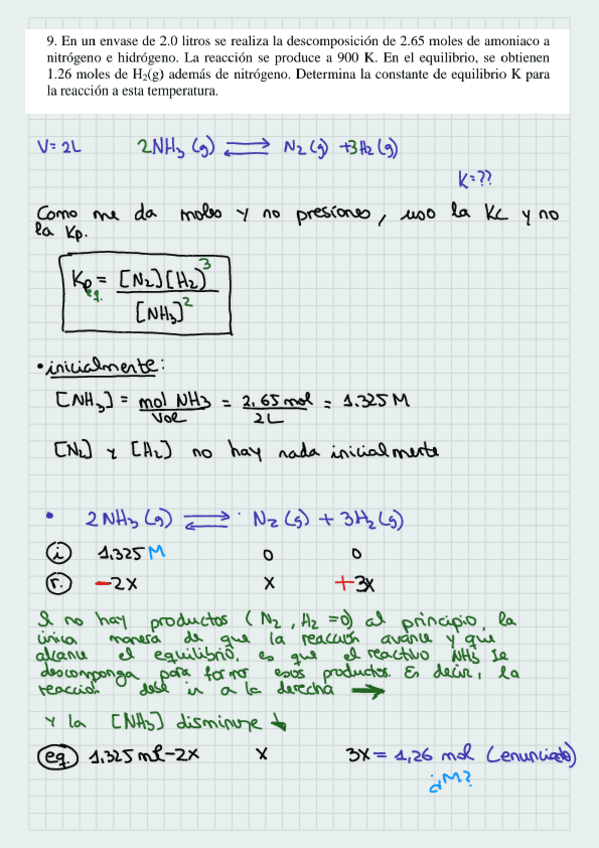 9. En un envase de 2.0 litros se realiza la descomposición de 2.65 moles de amoniaco a
nitrógeno e hidrógeno. La reacción se produce a 900 K. En el equilibrio, se obtienen
1.26 moles de H₂(g) además de nitrógeno. Determina la constante de equilibrio K para
la reacción a esta temperatura.
V=2L 2NH₃ (g) ⇌ N₂ (g) +3H₂ (g)
K=??
Como me da moles y no presiones, uso la Kc y no
la Kp.
Kp eq. = [N₂][H₂]³ / [NH₃]²
• inicialmente:
[NH₃] = mol NH₃ / Vol = 2,65 mol / 2L = 1.325 M
[N₂] y [H₂] no hay nada inicialmente
• 2NH₃ (g) ⇌ N₂ (g) + 3H₂ (g)
(i) 1,325 M 0 0
(r.) -2x x +3x
Si no hay productos (N₂, H₂ =0) al principio, la
única manera de que la reacción avance y que
alcance el equilibrio, es que el reactivo NH₃ se
descomponga para formar esos productos. Es decir, la
reacción debe ir a la derecha →
y la [NH₃] disminuye ↓
(eq.) 1,325 ml-2x x 3x = 1,26 mol (enunciado)
¿M?